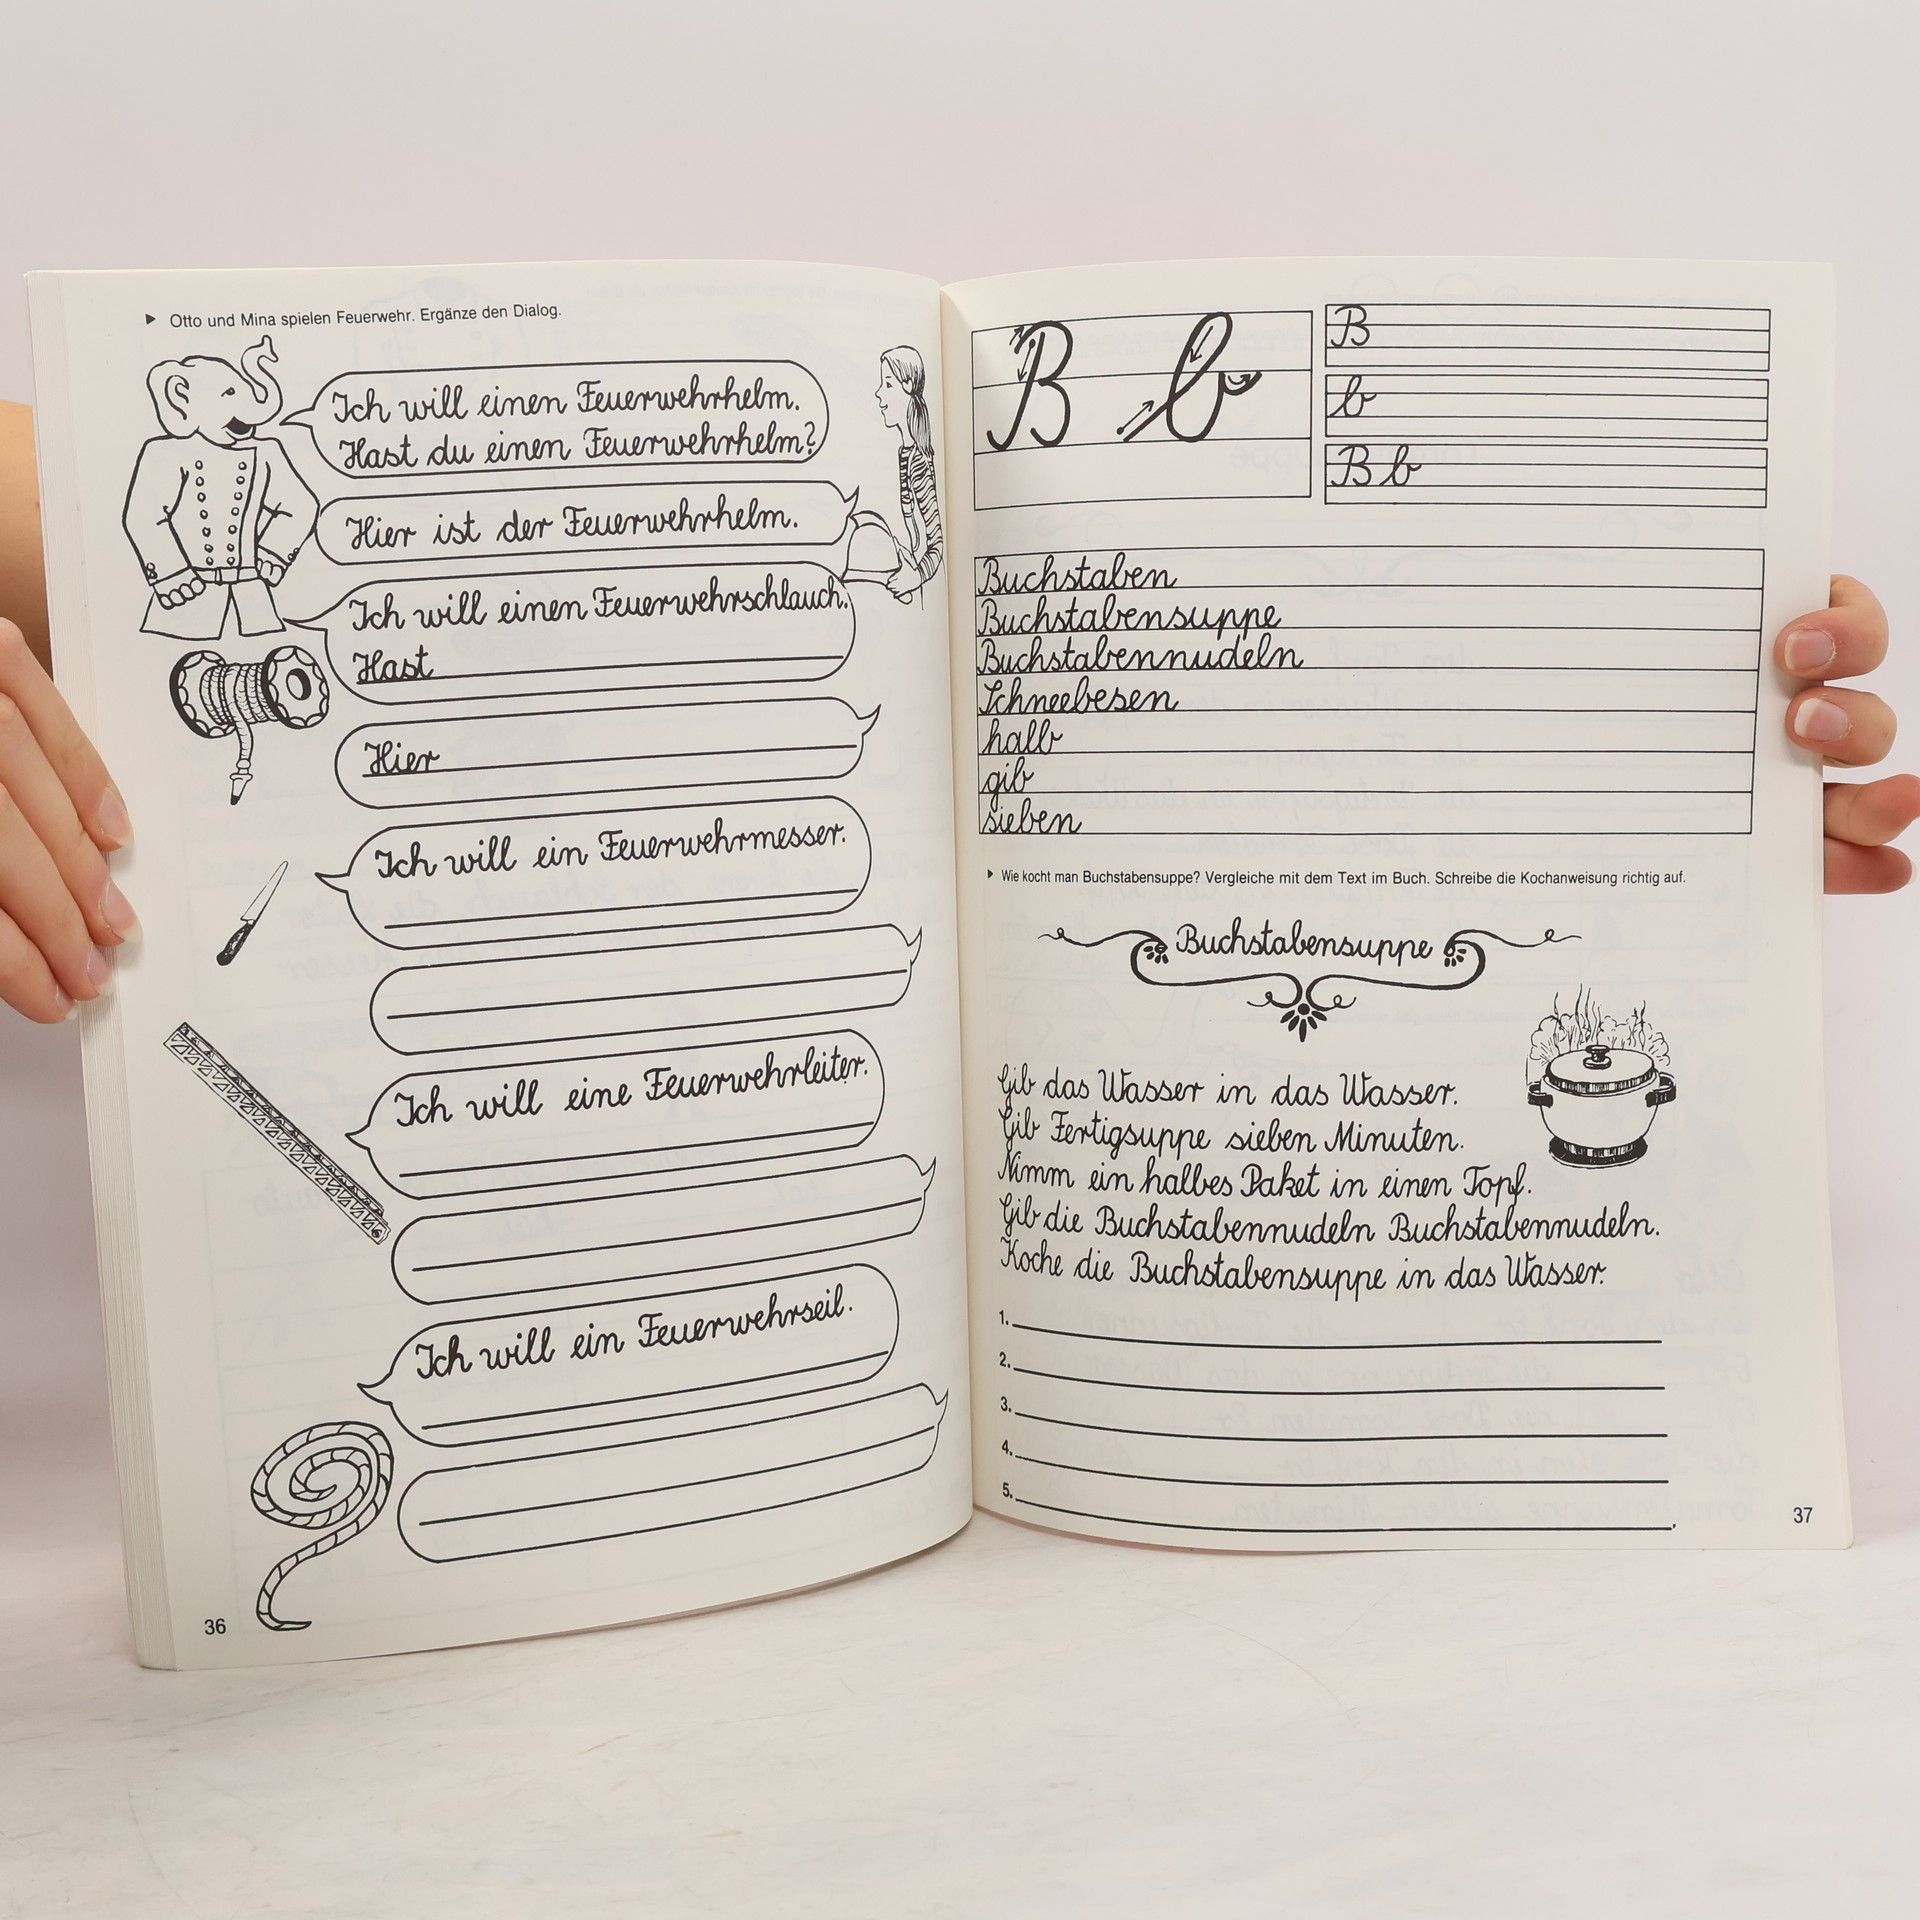 Otto und Mina spielen Feuerwehr. Ergänze den Dialog.
Ich will einen Feuerwehrhelm.
Hast du einen Feuerwehrhelm?
Hier ist der Feuerwehrhelm.
Ich will einen Feuerwehrschlauch.
Hast
Hier
Ich will ein Feuerwehrmesser.
Ich will eine Feuerwehrleiter.
Ich will ein Feuerwehrseil.
36
B b
B
b
B b
Buchstaben
Buchstabensuppe
Buchstabennudeln
Schneebesen
halb
gib
sieben
Wie kocht man Buchstabensuppe? Vergleiche mit dem Text im Buch. Schreibe die Kochanweisung richtig auf.
Buchstabensuppe
Gib das Wasser in das Wasser.
Gib Fertigsuppe sieben Minuten.
Nimm ein halbes Paket in einen Topf.
Gib die Buchstabennudeln Buchstabennudeln.
Koche die Buchstabensuppe in das Wasser.
1.
2.
3.
4.
5.
37